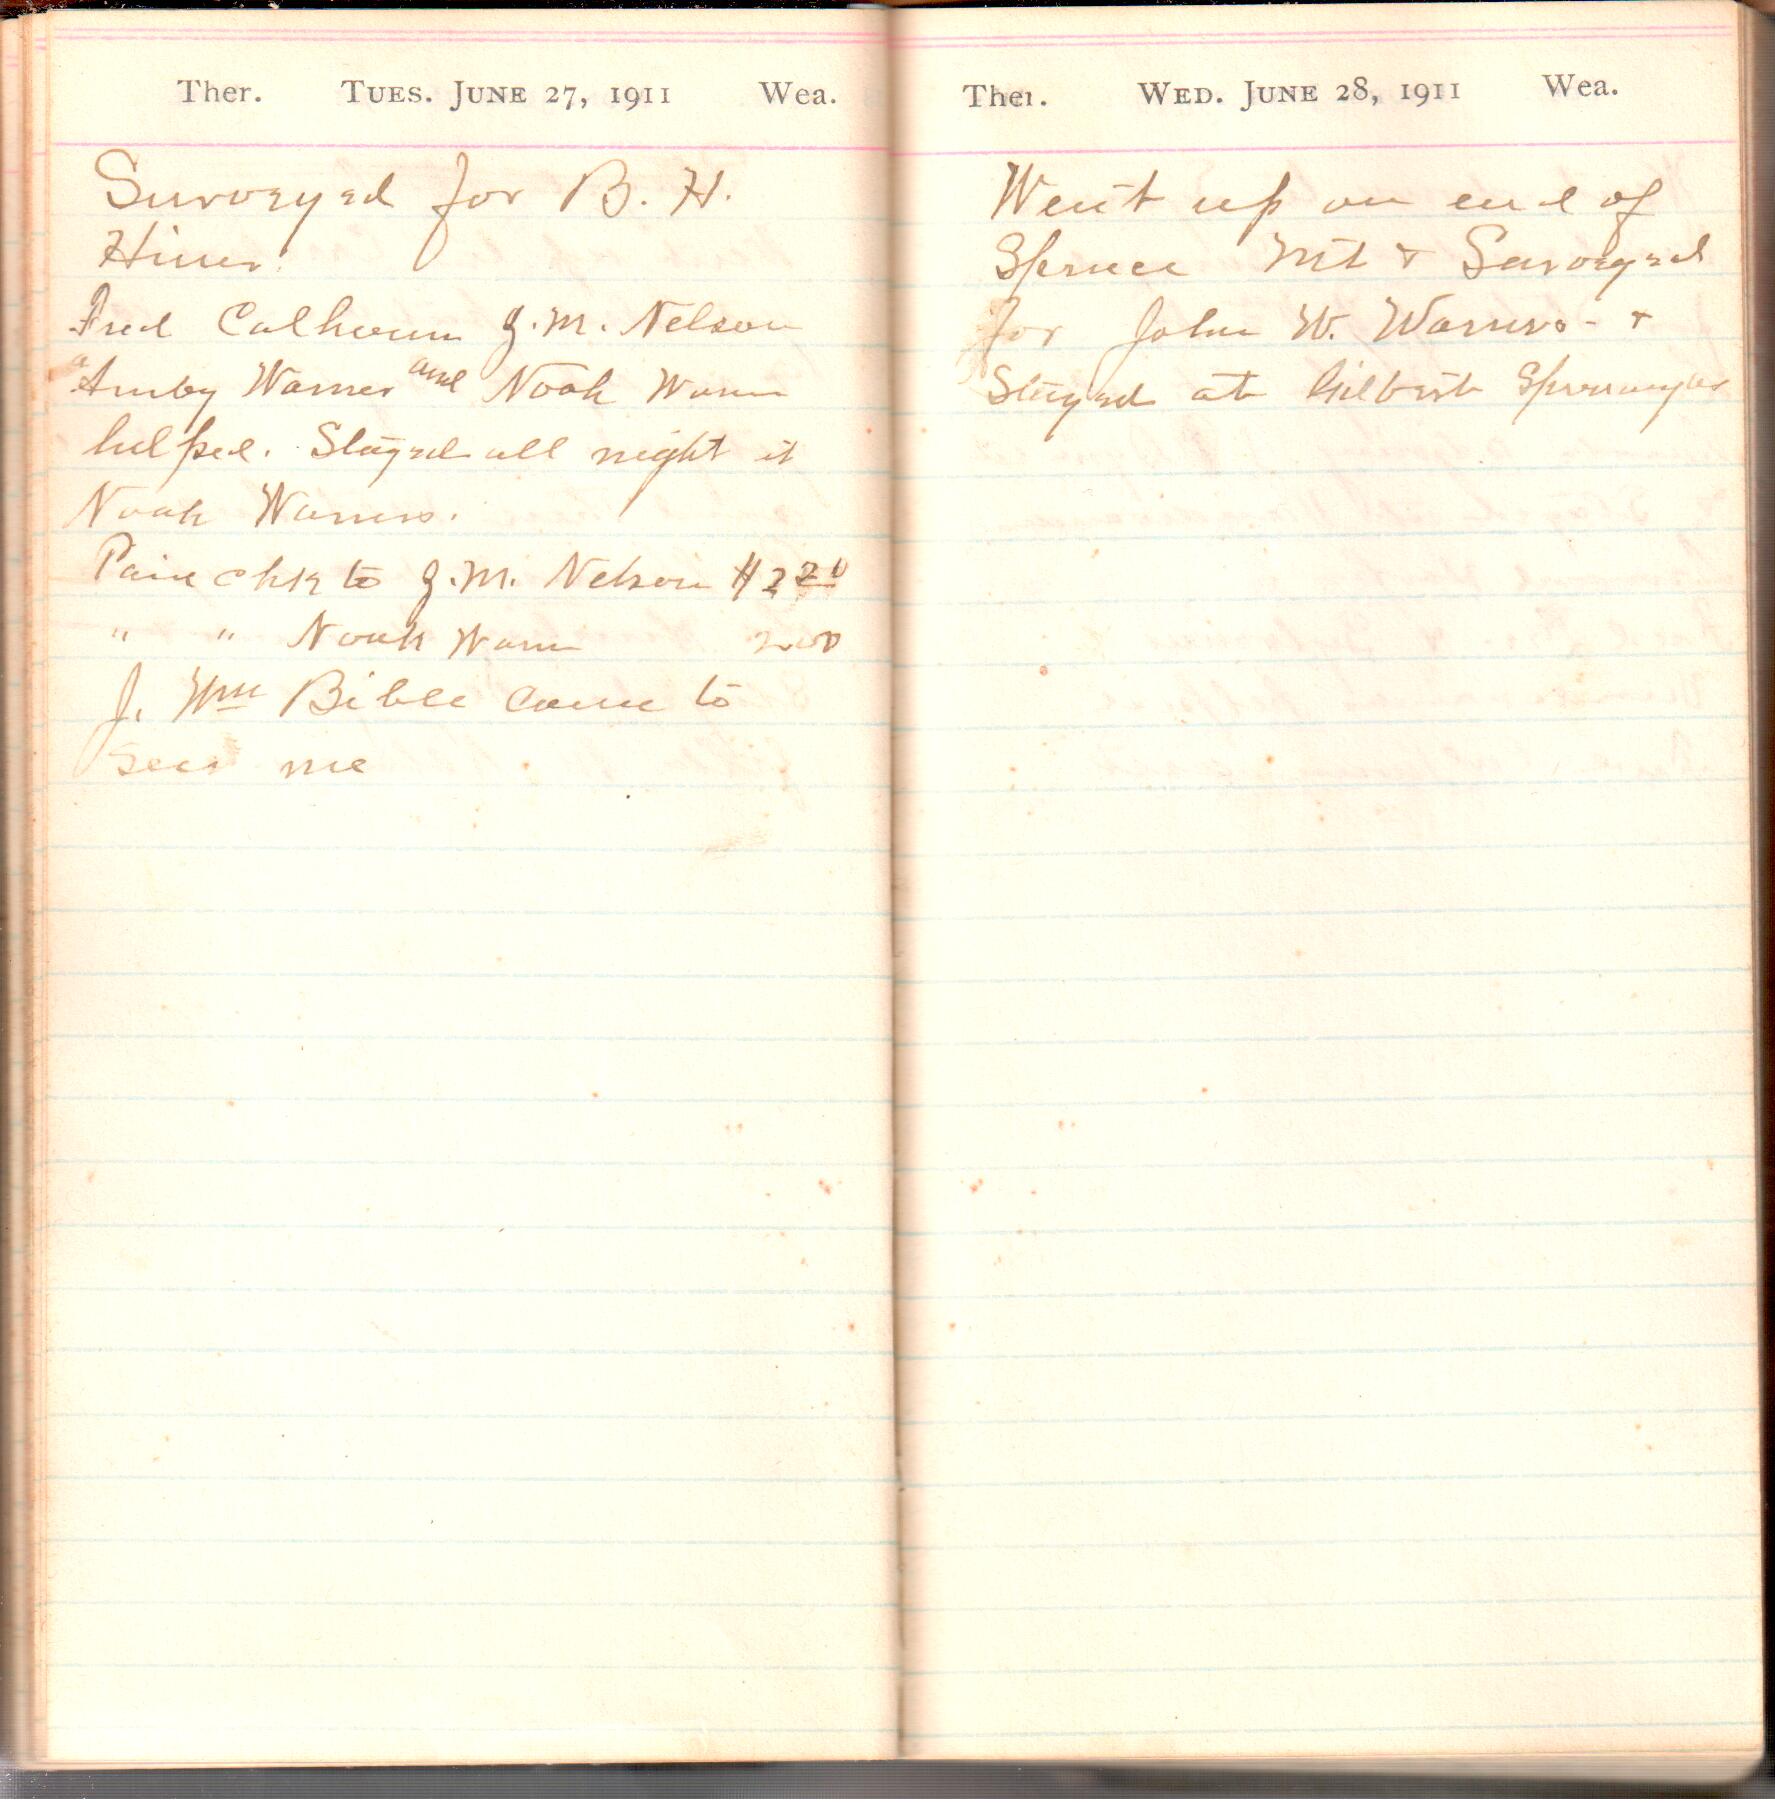 Ther. TUES. JUNE 27, 1911 Wea.
Surveyed for B. H.
Hiner.
Fred Calhoun J. M. Nelson
Amby Warner and Noah Warner
helped. Stayed all night at
Noah Warners.
Paid chk to J. M. Nelson $2
" " Noah Warner 2 00
J. Wm Bible came to
see me
Ther. WED. JUNE 28, 1911 Wea.
Went up on end of
Spruce Mt & Surveyed
for John W. Warner &
Stayed at Gilbert